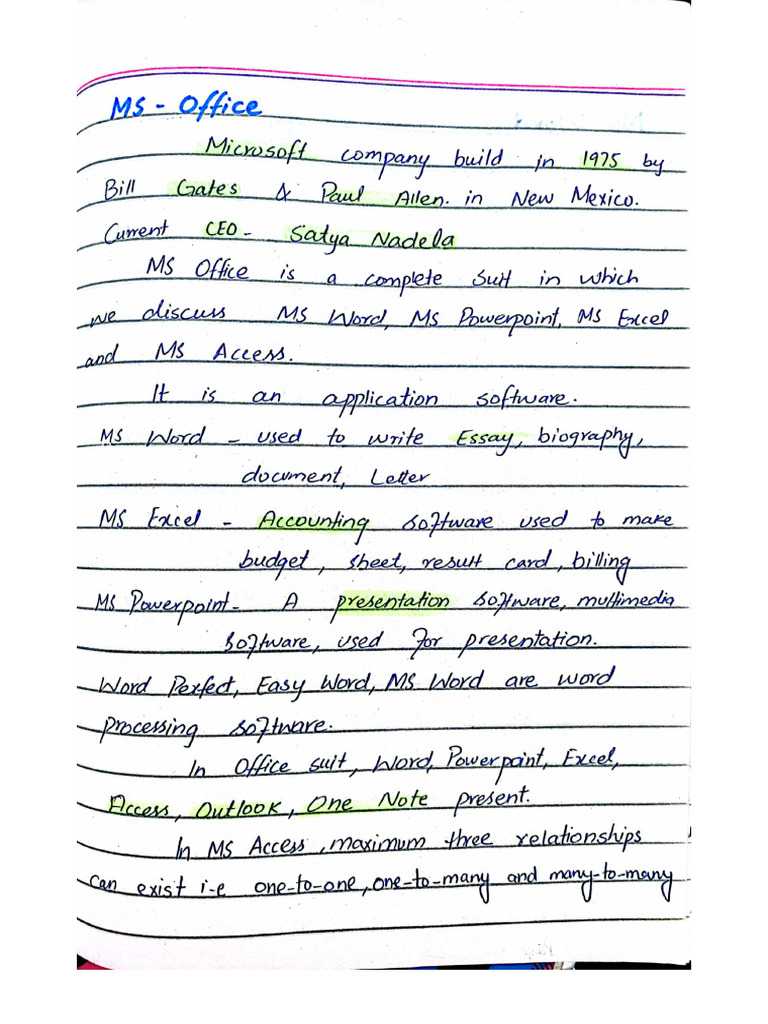 MS - Office
Microsoft company build in 1975 by
Bill Gates & Paul Allen. in New Mexico.
Current CEO - Satya Nadella
MS Office is a complete suit in which
we discuss MS Word, MS Powerpoint, MS Excel
and MS Access.
It is an application software.
MS Word - used to write Essay, biography,
document, Letter
MS Excel - Accounting software used to make
budget, sheet, result card, billing
MS Powerpoint - A presentation software, multimedia
software, used for presentation.
Word Perfect, Easy Word, MS Word are word
processing software.
In Office suit, Word, Powerpoint, Excel,
Access, Outlook, One Note present.
In MS Access, maximum three relationships
can exist i-e one-to-one, one-to-many and many-to-many